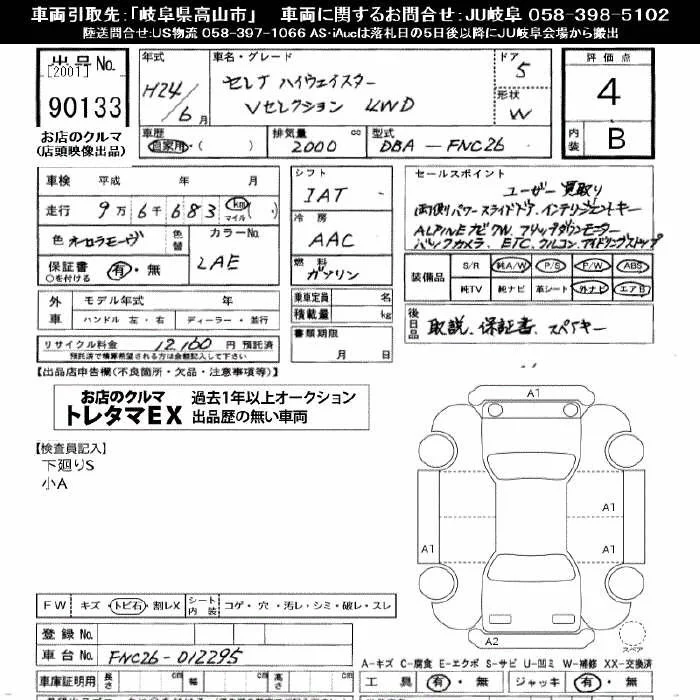 車両引取先:「岐阜県高山市」 車両に関するお問合せ:JU岐阜 058-398-5102
陸送問合せ:US物流 058-397-1066 AS·iAucは落札日の5日後以降にJU岐阜会場から搬出
出品 No.
[2001]
90133
お店のクルマ
(店頭映像出品)
年式 H24/6月
車名・グレード
セレナ ハイウェイスター
Vセレクション 4WD
ドア 5
形状 W
評価点
4
内装 B
車歴 自家用・( )
排気量 2000 cc
型式 DBA-FNC26
車検 平成 年 月
走行 9万6千683 km マイル ( )
色 オーロラモーヴ
色替
カラーNo. LAE
保証書 ○を付ける 有・無
外車 モデル年式 年
ハンドル 左・右 ディーラー・並行
リサイクル料金 12,160 円 預託済
預託済で積算希望される方は金額記入して下さい
シフト
IAT
冷房
AAC
燃料
ガソリン
乗車定員 名
積載量 kg
書類期限
月 日
セールスポイント
ユーザー買取り
両側パワースライドドア.インテリジェントキー
ALPINEナビTV.フリップダウンモニター
バックカメラ.ETC.クルコン.アイドリングストップ
装備品
S/R 純A/W P/S P/W ABS
純TV 純ナビ 革シート 外ナビ エアB
後日品 取説.保証書.スペアキー
【出品店申告欄(不良箇所・欠品・注意事項等)】
お店のクルマ
トレタマEX
過去1年以上オークション
出品歴の無い車両
【検査員記入】
下廻りS
小A
A1
A1
A1
A1
A2
スペア
FW キズ・トビ石・割レX
シート内装 コゲ・穴・汚レ・シミ・破レ・スレ
登録 No.
車台 No. FNC26-012295
A-キズ C-腐食 E-エクボ S-サビ U-凹ミ W-補修 XX-交換済
車庫証明用 長さ cm 幅 cm 高さ cm
工具 有・無 ジャッキ 有・無